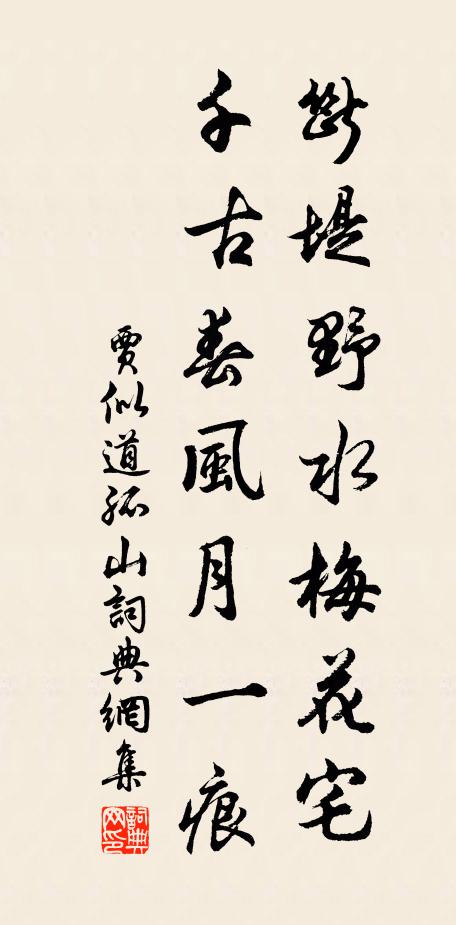 斷堤野水梅花宅
千古春風月一痕
賈似道孤山詞典網集
詞典網印